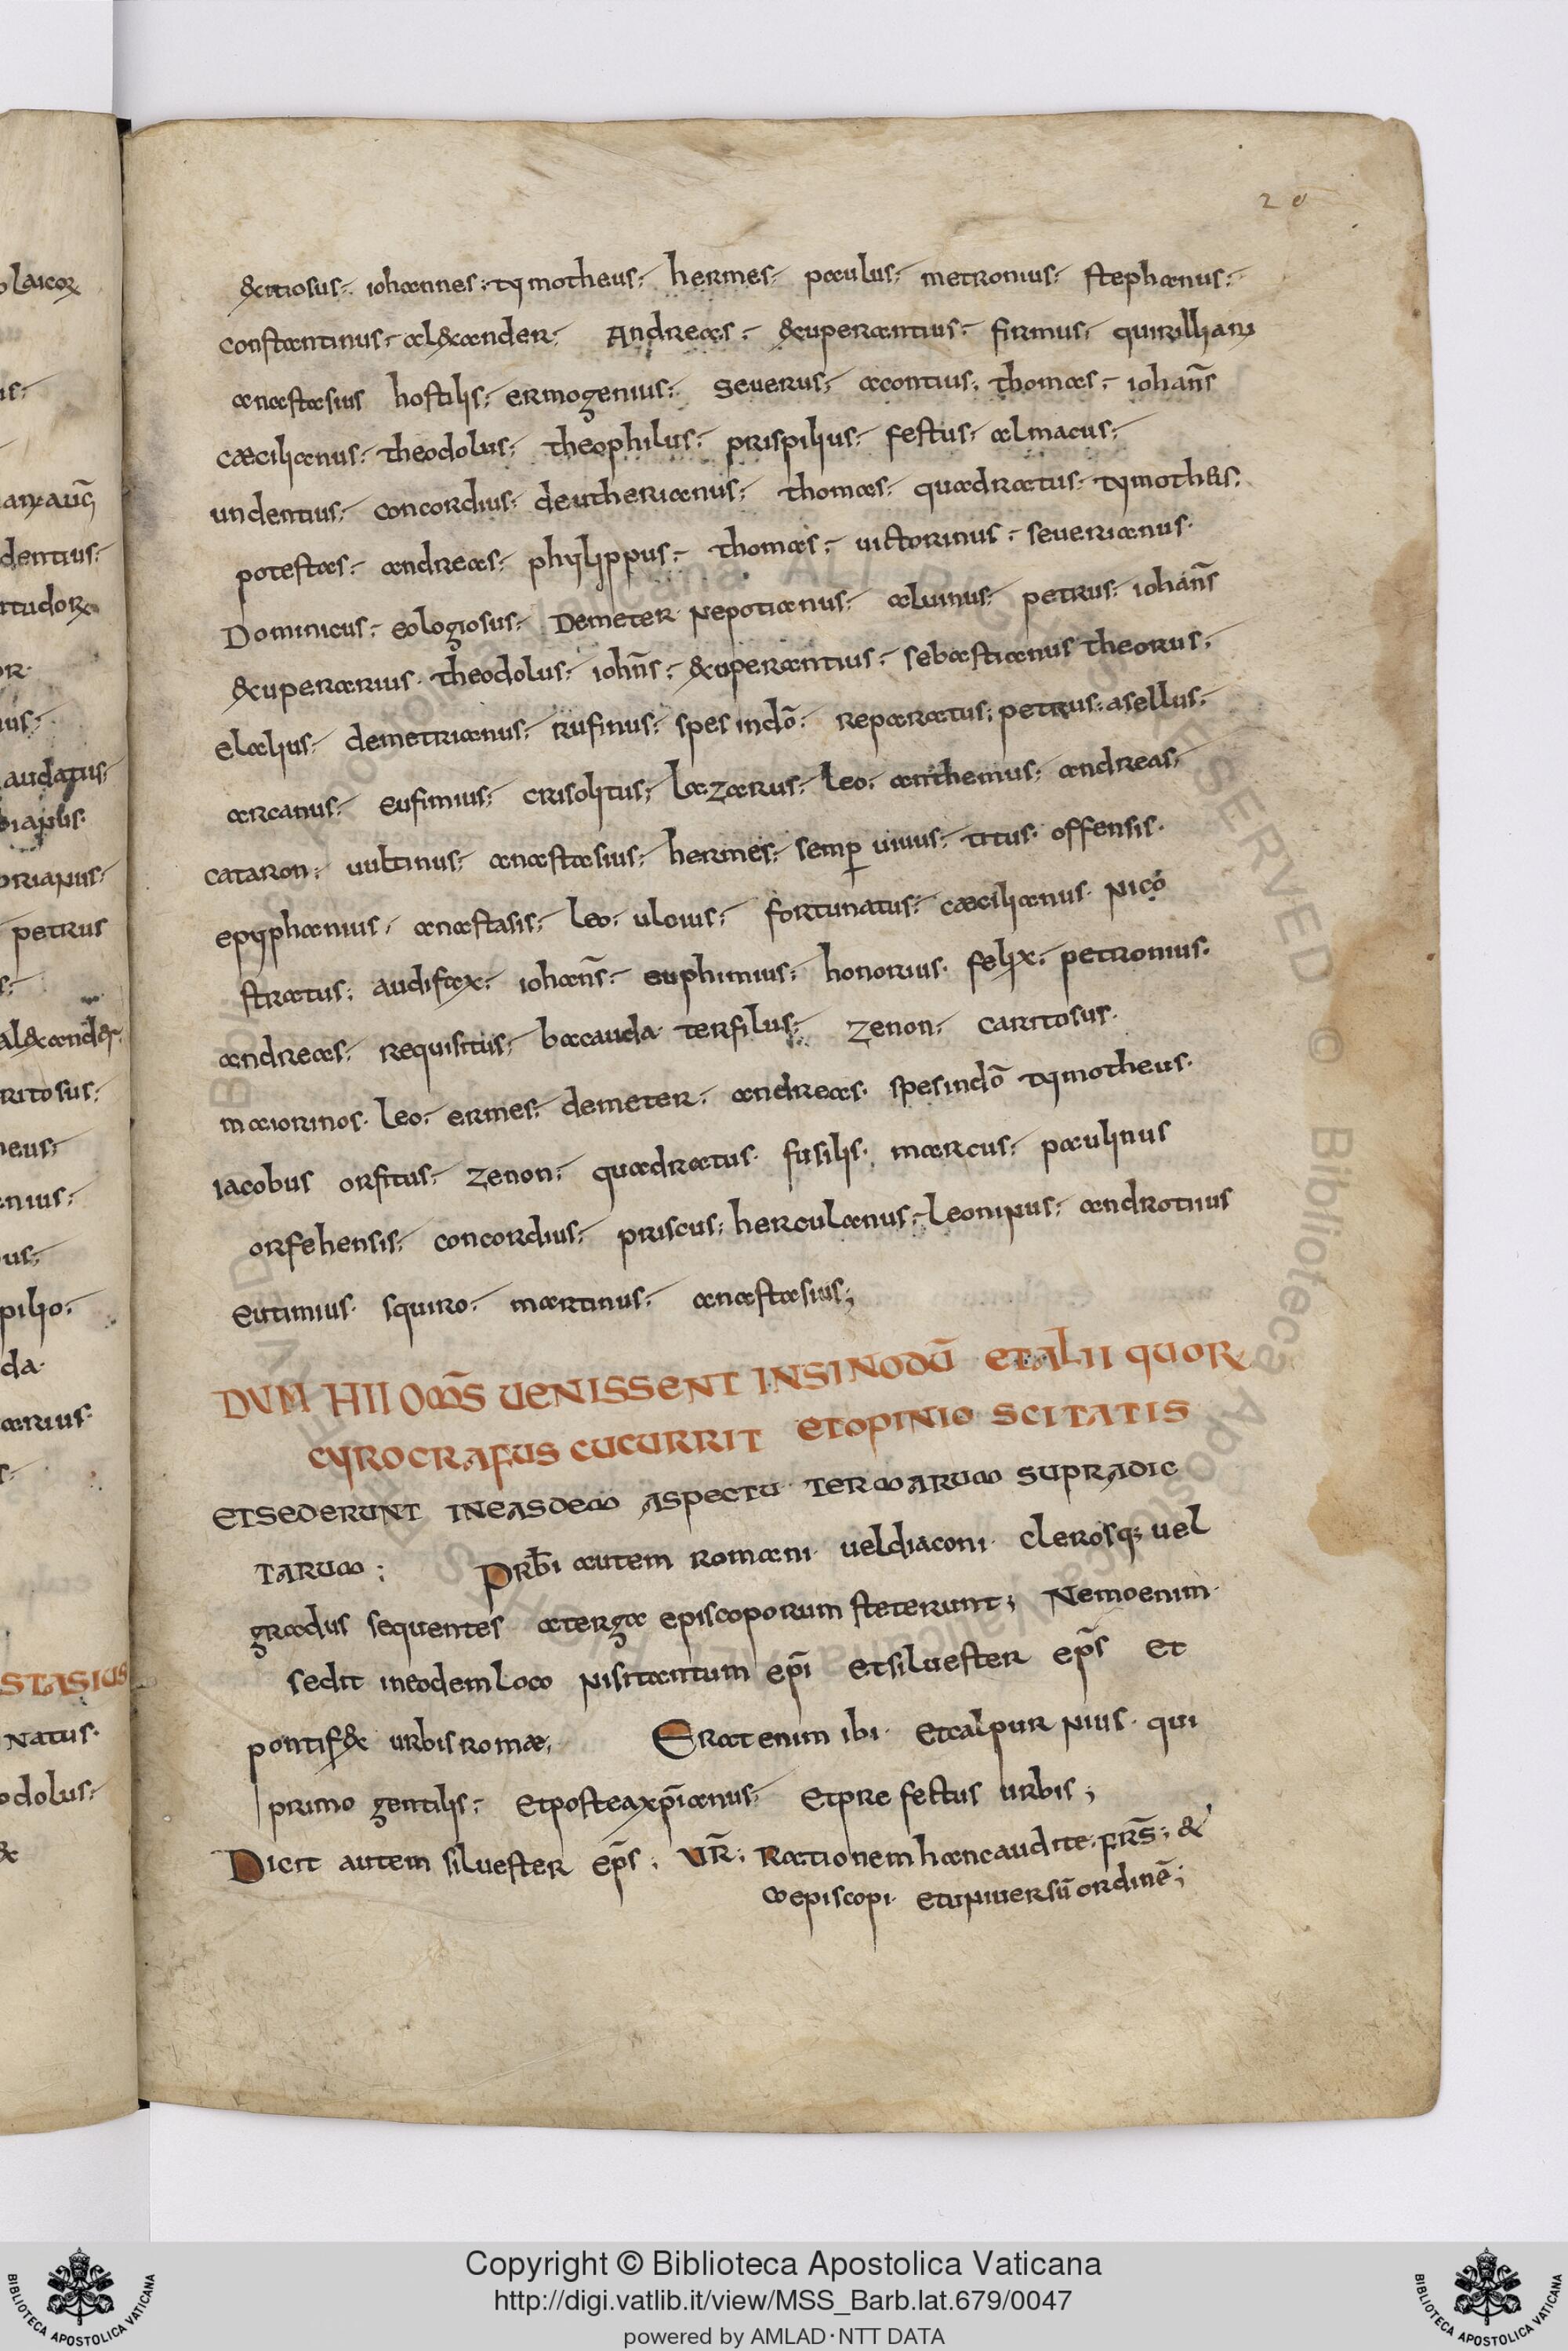 20
&citiosus· iohannes· tymotheus· hermes· paulus· metronius· stephanus·
constantinus· al&xander· Andreas· &xuperantius· firmus· quirillianus
anastasius hostilis· ermogenius· severus· acontius· thomas· iohañs
cæcilianus· theodolus· theophilus· prispilius· festus· almacus·
undentius· concordius· deutherianus· thomas· quadratus· tymotheus·
potestas· andreas· phylippus· thomas· uictorinus· seuerianus·
Dominicus· eologiosus· Demeter· Nepotianus· aluinus· petrus· iohañs
&xuperarius· theodolus· iohñs· &xuperantius· sebastianus theorus·
elalius· demetrianus· rufinus· spes indõ· reparatus· petrus· asellus·
arcanus· eufimius· crisolitus· lazarus· leo· anthemius· andreas·
cataron· uultinus· anastasius· hermes· semp uiuus· titus· offensis·
epyphanius· anastasis· leo· uloius· fortunatus· cæcilianus· Nico
stratus· audifax· iohañs· euphimius· honorius· felix· petronius·
andreas· requisitus· bacauda· tersilus· zenon· caritosus·
maiorinos· leo· ermes· demeter· andreas· spesindõ tymotheus·
iacobus orfitus· zenon· quadratus· fusilis· marcus· paulinus
orfehensis· concordius· priscus· herculanus· leoninus· androtius
eutimius· squiro· martinus· anastasius;
DVM HII OM̄S UENISSENT INSINODŪ ETALII QUOR
CYROCRAFUS CUCURRIT ETOPINIO SCITATIS
ETSEDERUNT INEASDEM ASPECTU TERMARUM SUPRADIC
TARUM; Prb̄i autem romani· ueldiaconi· clerosq; uel
gradus sequentes aterga episcoporum steterunt; Nemoenim·
sedit ineodemloco Nisitantum ep̄i etsiluester ep̄s et
pontif& urbisromæ; Eratenim ibi· etcalpurNius· qui
primo gentilis· etposteaxp̄ianus· etprefectus urbis;
Dicit autem siluester ep̄s; UR̄; Rationemhancaudite· FRS̄; &
coepiscopi· etuNiuersū ordinē;
Copyright © Biblioteca Apostolica Vaticana
http://digi.vatlib.it/view/MSS_Barb.lat.679/0047
powered by AMLAD·NTT DATA
BIBLIOTECA APOSTOLICA VATICANA
BIBLIOTECA APOSTOLICA VATICANA